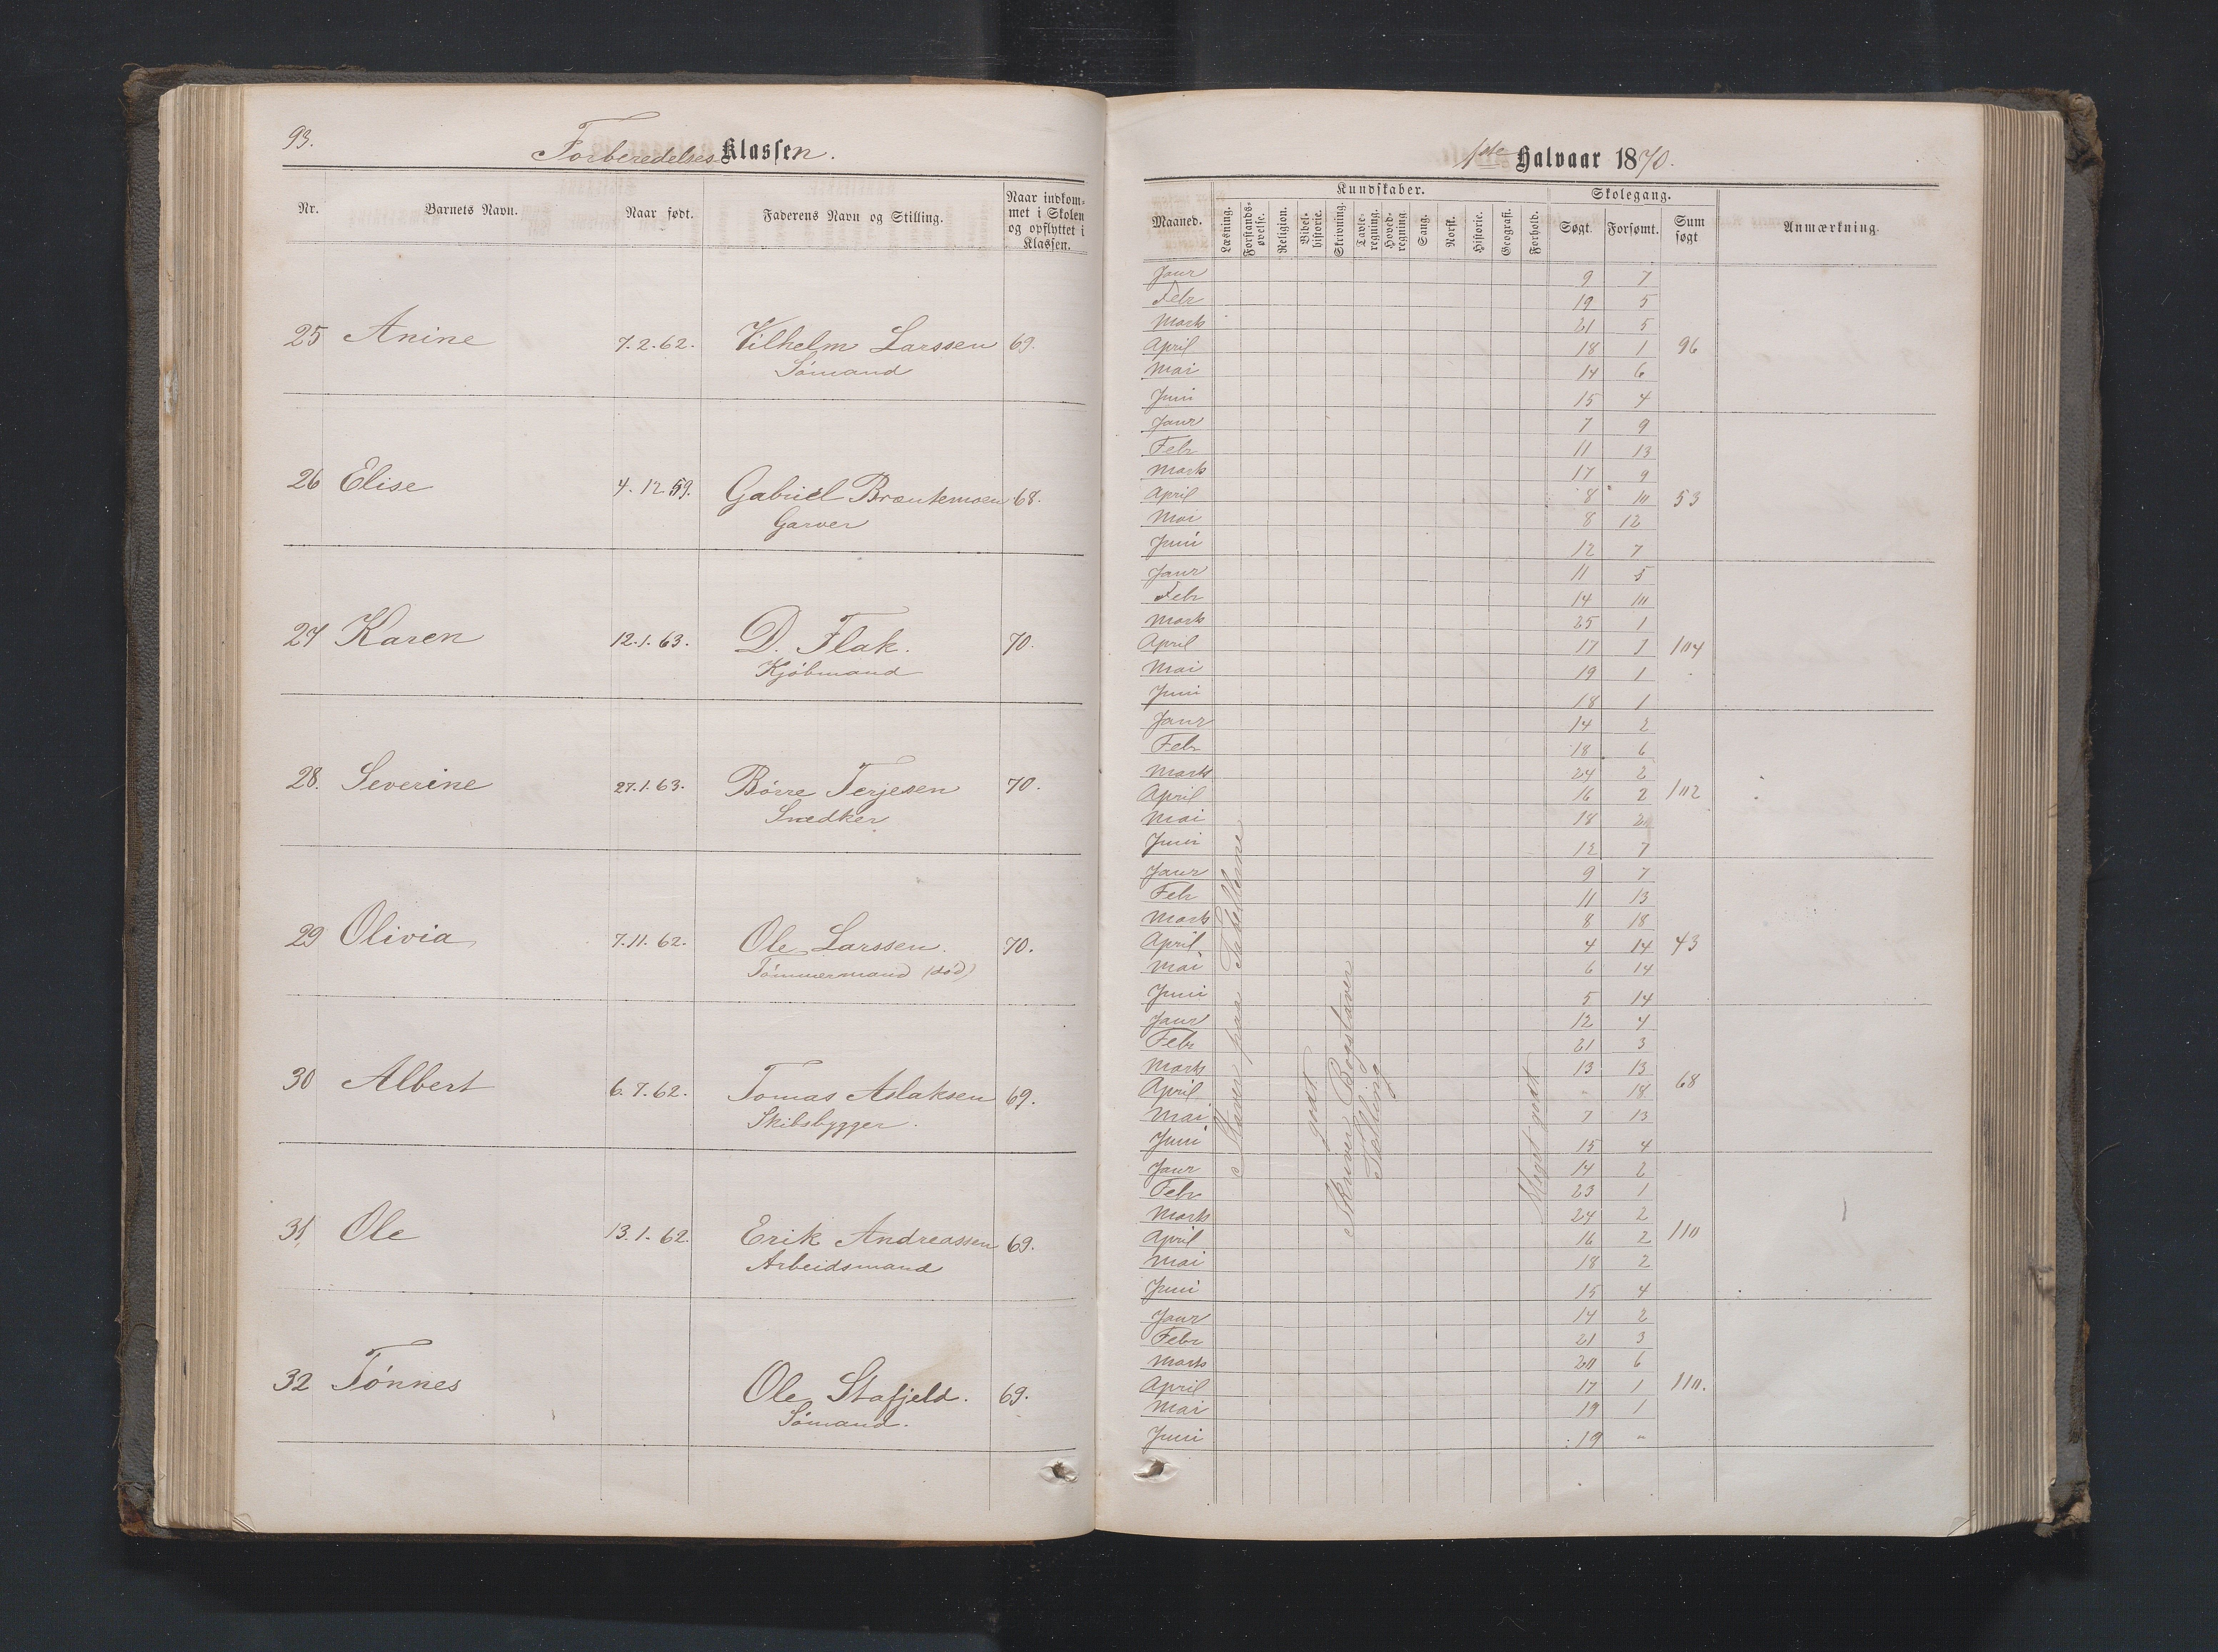 93.
Forberedelses Klassen.
Nr. Barnets Navn. Naar født. Faderens Navn og Stilling. Naar indkom-
met i Skolen
og opflyttet i
Klassen.
25 Anine 7.2.62. Vilhelm Larssen 69.
Sømand
26 Elise 4.12.59. Gabriel Brautemoen 68.
Garver
27 Karen 12.1.63. D. Flak. 70.
Kjøbmand
28. Severine 27.1.63. Børre Terjesen 70.
Snedker
29 Olivia 7.11.62. Ole Larssen. 70.
Tømmermand (død)
30 Albert 6.7.62. Tomas Aslaksen 69.
Skibsbygger.
31, Ole 13.1.62. Erik Andreassen 69.
Arbeidsmand
32 Tønnes Ole Stafjeld. 69.
Sømand.
1ste Halvaar 1870.
Maaned. Kundskaber. Skolegang. Anmærkning.
Læsning. Forstands-
øvelse. Religion. Bibel-
historie. Skrivning. Tavle-
regning. Hoved-
regning. Sang. Norsk. Historie. Geografi. Forhold. Søgt. Forsømt. Sum
søgt
Janr 9 7
Febr 19 5
Marts 21 5
April 18 1 96
Mai 14 6
Juni 15 4
Janr 7 9
Febr 11 13
Marts 17 9
April 8 10 53
Mai 8 12
Juni 12 7
Janr 11 5
Febr 14 10
Marts 25 1
April 17 1 104
Mai 19 1
Juni 18 1
Janr 14 2
Febr 18 6
Marts 24 2
April 16 2 102
Mai 18 2
Juni 12 7
Janr 9 7
Febr 11 13
Marts 8 18
April 4 14 43
Mai 6 14
Juni 5 14
Janr 12 4
Febr 21 3
Marts 13 13
April " 18 68
Mai 7 13
Juni 15 4
Janr 14 2
Febr 23 1
Marts 24 2
April 16 2 110
Mai 18 2
Juni 15 4
Janr 14 2
Febr 21 3
Marts 20 6
April 17 1 110.
Mai 19 1
Juni 19 "
Staver paa Tabellerne
godt
Skriver Bogstaver
Tælling
Meget godt